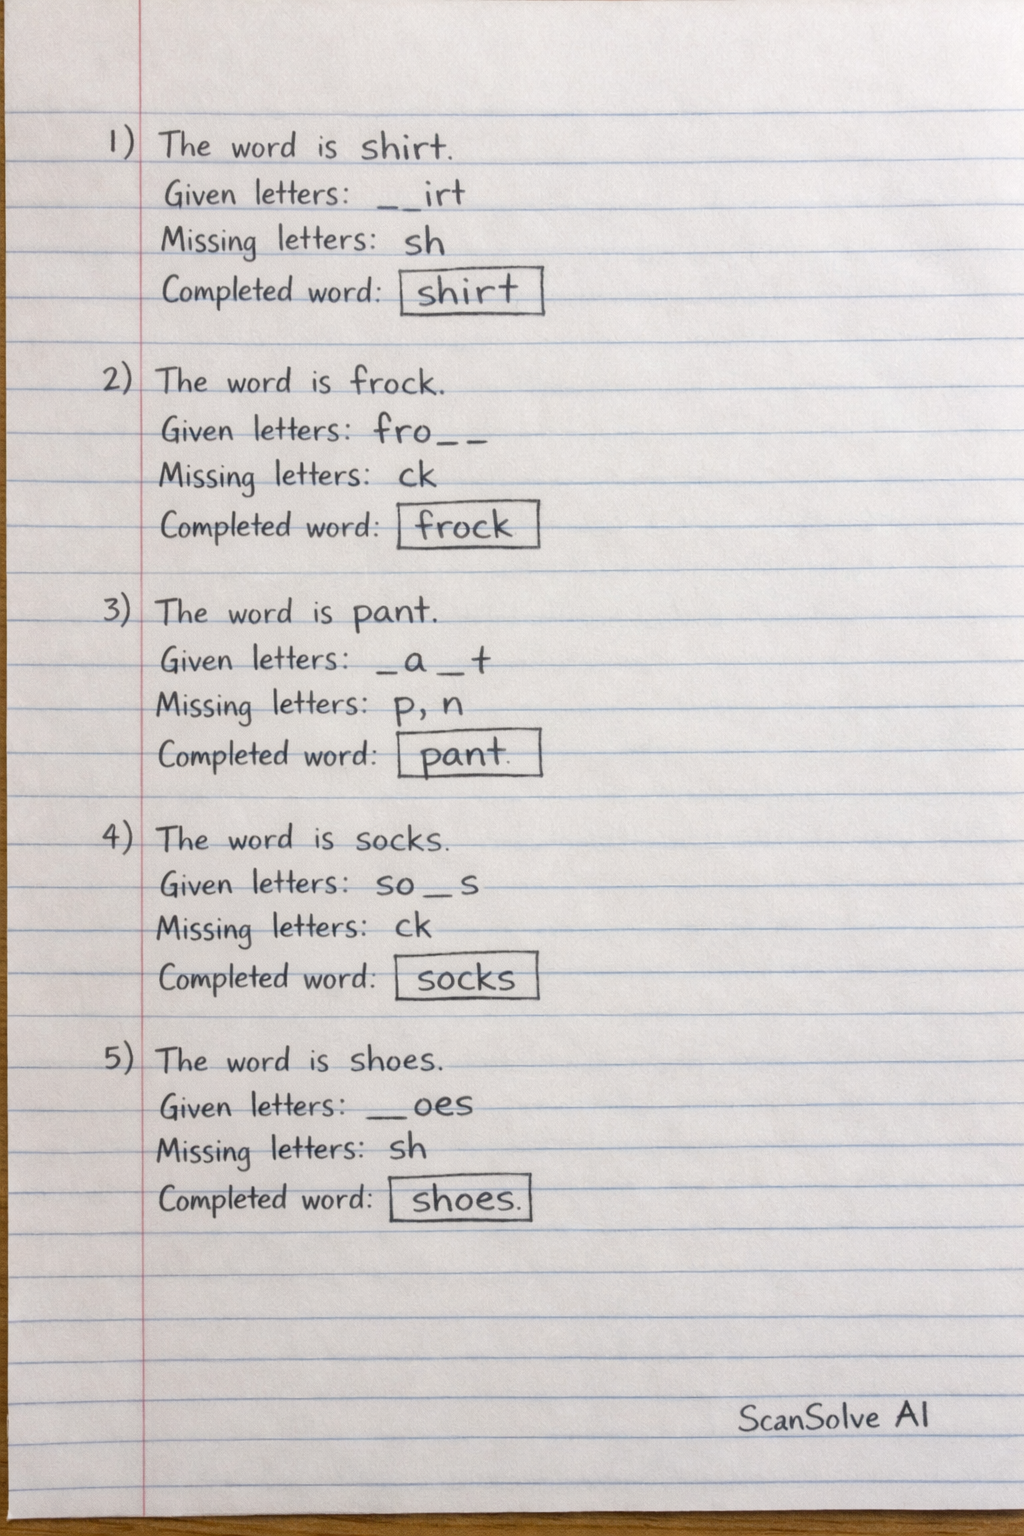 1) The word is shirt.
Given letters: __irt
Missing letters: sh
Completed word: shirt
2) The word is frock.
Given letters: fro__
Missing letters: ck
Completed word: frock
3) The word is pant.
Given letters: _a_t
Missing letters: p, n
Completed word: pant.
4) The word is socks.
Given letters: so_s
Missing letters: ck
Completed word: socks
5) The word is shoes.
Given letters: __oes
Missing letters: sh
Completed word: shoes.
ScanSolve AI